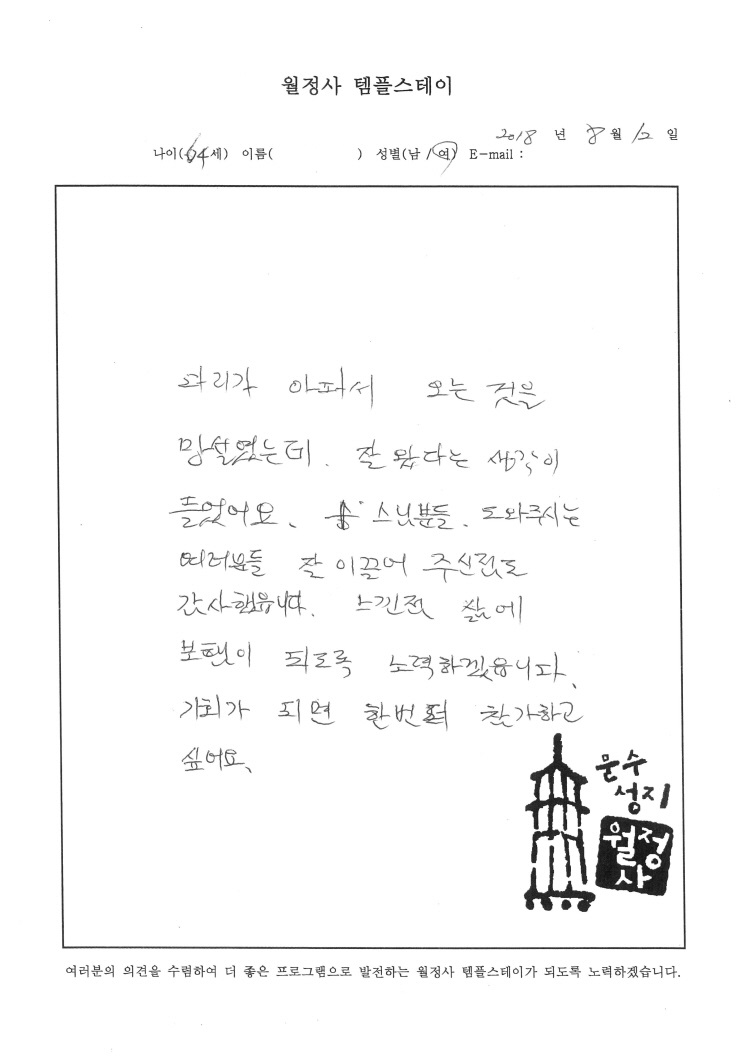 월정사 템플스테이
2018 년 8 월 12 일
나이(64세) 이름( ) 성별(남/여) E-mail :
다리가 아파서 오는 것을
망설였는데. 잘 왔다는 생각이
들었어요. 스님분들. 도와주시는
여러분들 잘 이끌어 주신점도
감사했읍니다. 느낀점 삶에
보탬이 되도록 노력하겠읍니다.
기회가 되면 한번 더 참가하고
싶어요.
문수
성지
월정
사
여러분의 의견을 수렴하여 더 좋은 프로그램으로 발전하는 월정사 템플스테이가 되도록 노력하겠습니다.